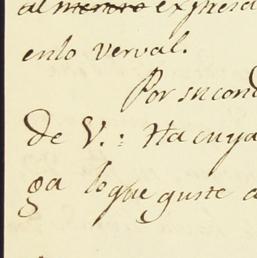 al menora expresa
enlo verval.
Por su con
de V.: Ha cuya
ga lo que guste a